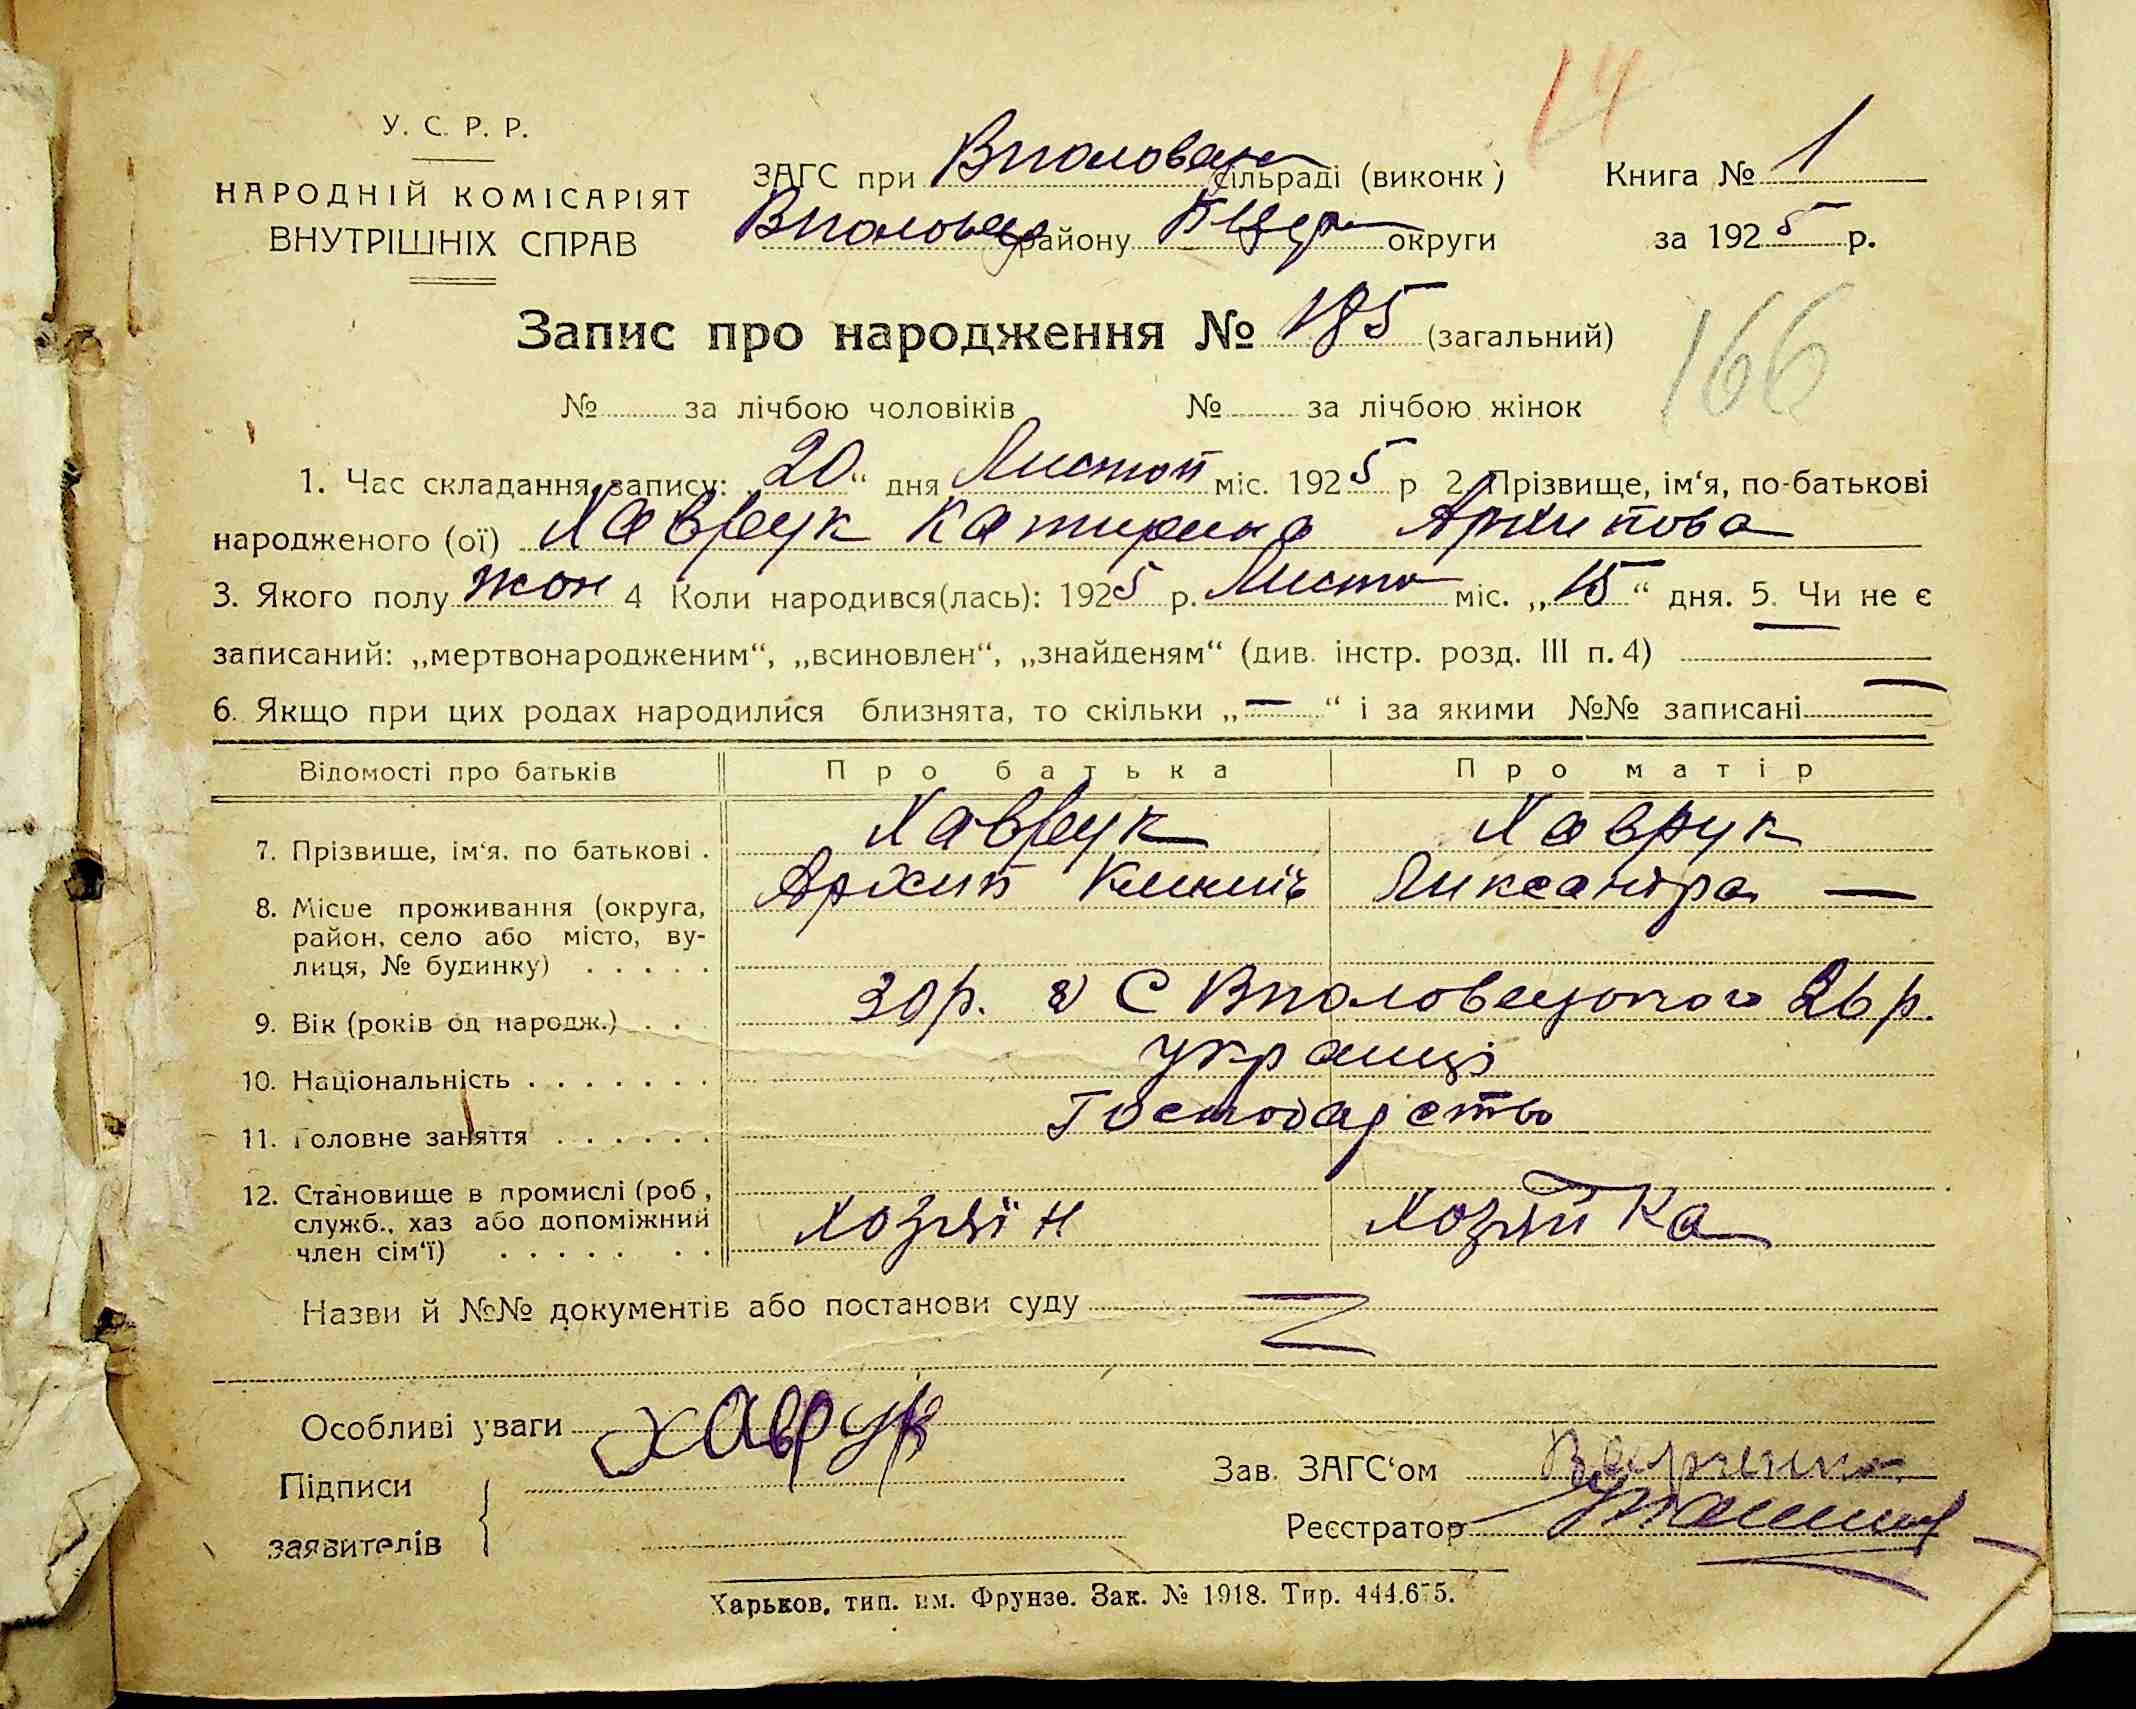 14
У. С. Р. Р.
НАРОДНІЙ КОМІСАРІЯТ
ВНУТРІШНІХ СПРАВ
ЗАГС при Вполовец сільраді (виконк)
Вполовец району БЦер округи
Книга № 1
за 1925 р.
Запис про народження № 185 (загальний)
166
№ за лічбою чоловіків № за лічбою жінок
1. Час складання запису: 20 " дня Листоп міс. 1925 р 2. Прізвище, ім'я, по-батькові
народженого (ої) Хаврук Катирина Архипова
3. Якого полу жон 4 Коли народився(лась): 1925 р. Листо міс. „15" дня. 5. Чи не є
записаний: „мертвонародженим", „всиновлен", „знайденям" (див. інстр. розд. III п. 4) —
6. Якщо при цих родах народилися близнята, то скільки „—" і за якими №№ записані —
Відомості про батьків Про батька Про матір
7. Прізвище, ім'я. по батькові . Хаврук Хаврук
Архип Климів Ликсандра —
8. Місце проживання (округа,
район, село або місто, ву-
лиця, № будинку) . . . . .
9. Вік (років од народж.) . . 30 р. в С Вполовецького 26 р.
10. Національність . . . . . . . украинці
11. Головне заняття . . . . . . Господарство
12. Становище в промислі (роб,
служб., хаз або допоміжний
член сім'ї) . . . . . . . Хозяїн Хозяйка
Назви й №№ документів або постанови суду
Особливі уваги
Хаврук
Підписи
заявителів
Зав. ЗАГС'ом
Реєстратор
Харьков, тип. им. Фрунзе. Зак. № 1918. Тир. 444.675.